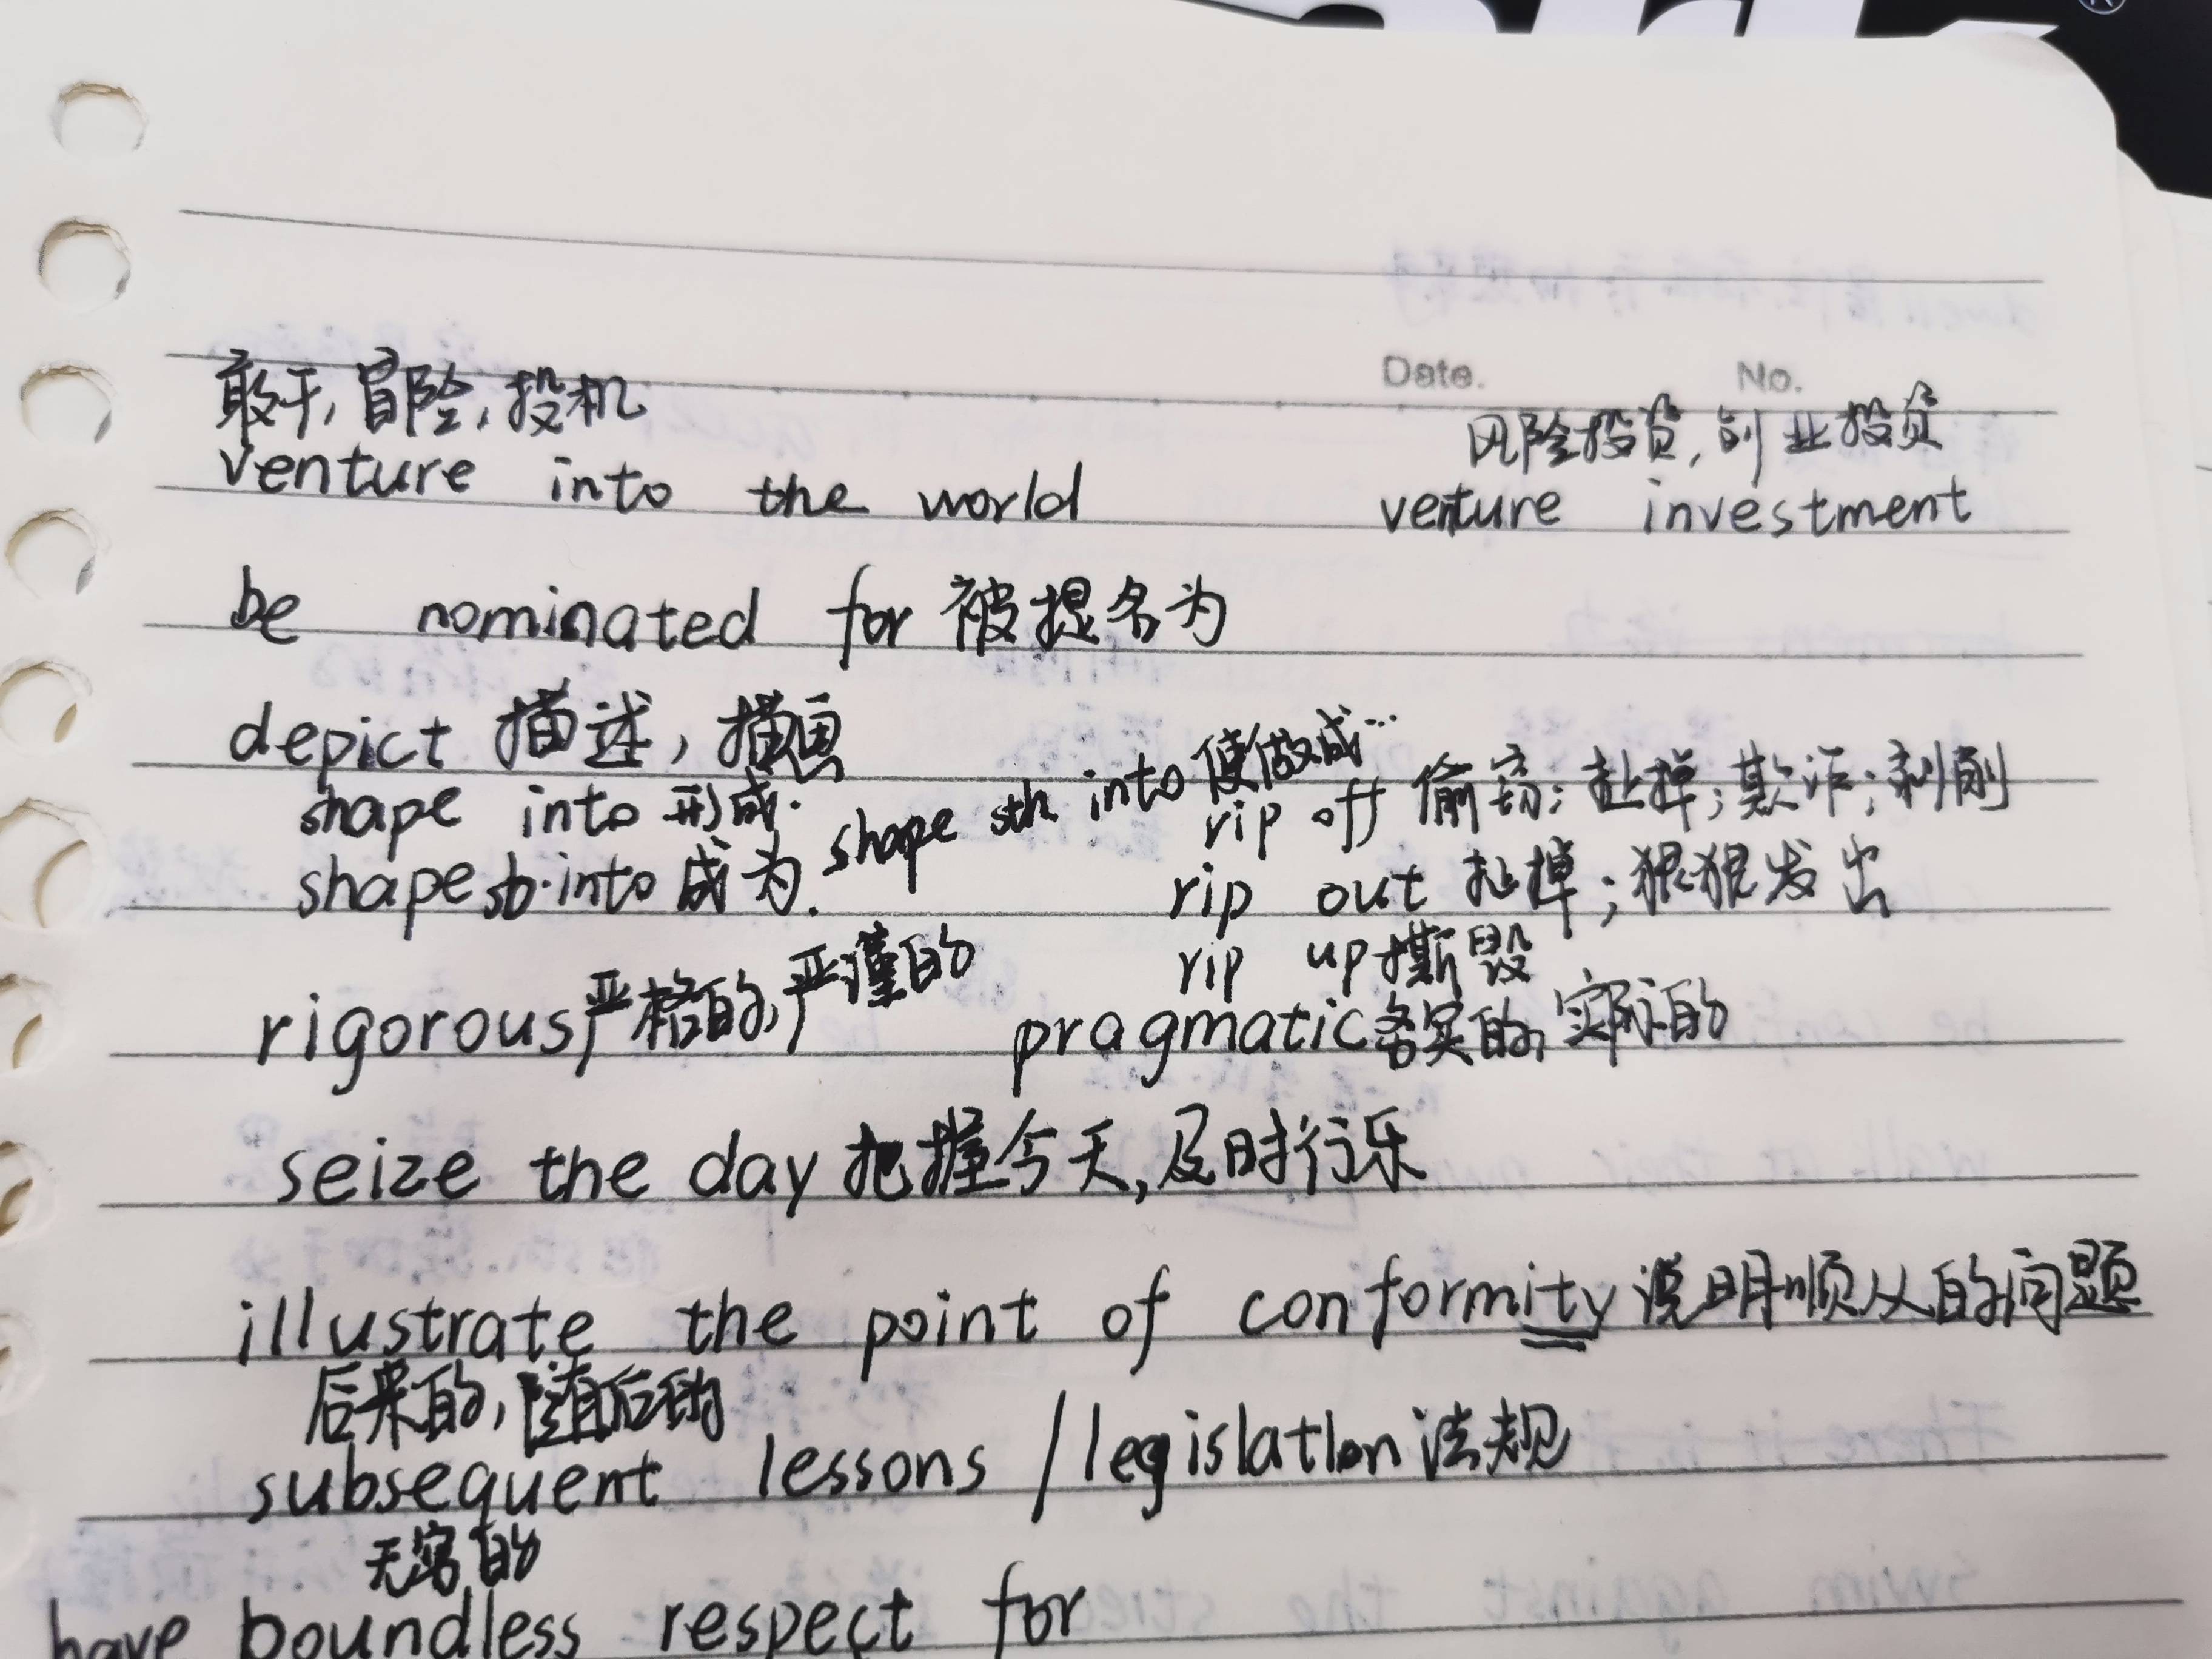 Date. No.
敢于,冒险,投机 风险投资,创业投资
venture into the world venture investment
be nominated for 被提名为
depict 描述,描画
shape into 形成. shape sth into 使做成… rip off 偷窃;扯掉;欺诈;剥削
shape sb. into 成为. rip out 扯掉;狠狠发出
rip up 撕毁
rigorous 严格的,严谨的 pragmatic 务实的,实际的
seize the day 把握今天,及时行乐
illustrate the point of conformity 说明顺从的问题
后来的,随后的
subsequent lessons / legislation 法规
无穷的
have boundless respect for